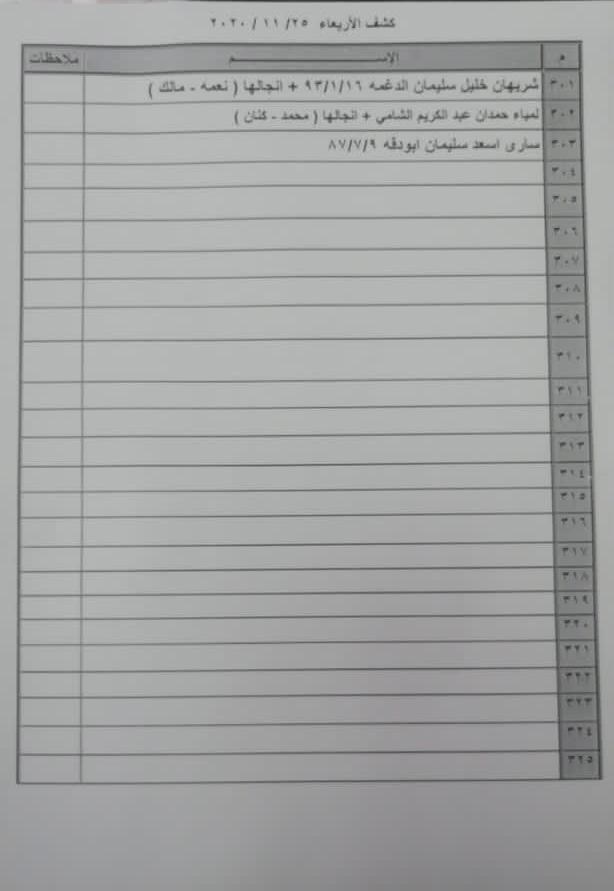 كشف الأربعاء ٢٥/ ١١ / ٢٠٢٠
م الاســـــــــم ملاحظات
٣٠١ شريهان خليل سليمان الدغمه ٩٣/١/١٦ + انجالها ( نعمه - مالك )
٣٠٢ لمياء حمدان عبد الكريم الشامي + انجالها ( محمد - كنان )
٣٠٣ سارى اسعد سليمان ابودقه ٨٧/٧/٩
٣٠٤
٣٠٥
٣٠٦
٣٠٧
٣٠٨
٣٠٩
٣١٠
٣١١
٣١٢
٣١٣
٣١٤
٣١٥
٣١٦
٣١٧
٣١٨
٣١٩
٣٢٠
٣٢١
٣٢٢
٣٢٣
٣٢٤
٣٢٥